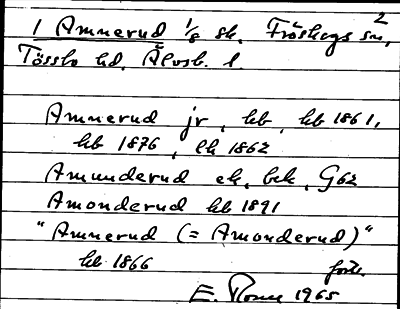 2
1 Amnerud 1/8 sk. Fröskogs sn,
Tössbo hd. Älvsb. l.
Amnerud jr, hb, hb 1861,
hb 1876, lk 1862
Amunderud ek, bek, G62
Amonderud hb 1891
"Amnerud (= Amonderud)"
hb 1866
forts.
E. 1965